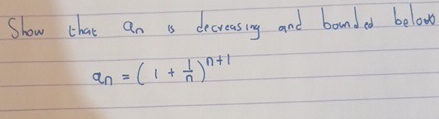 Show that an is decreasing and bounded below
an = (1 + 1/n)^n+1